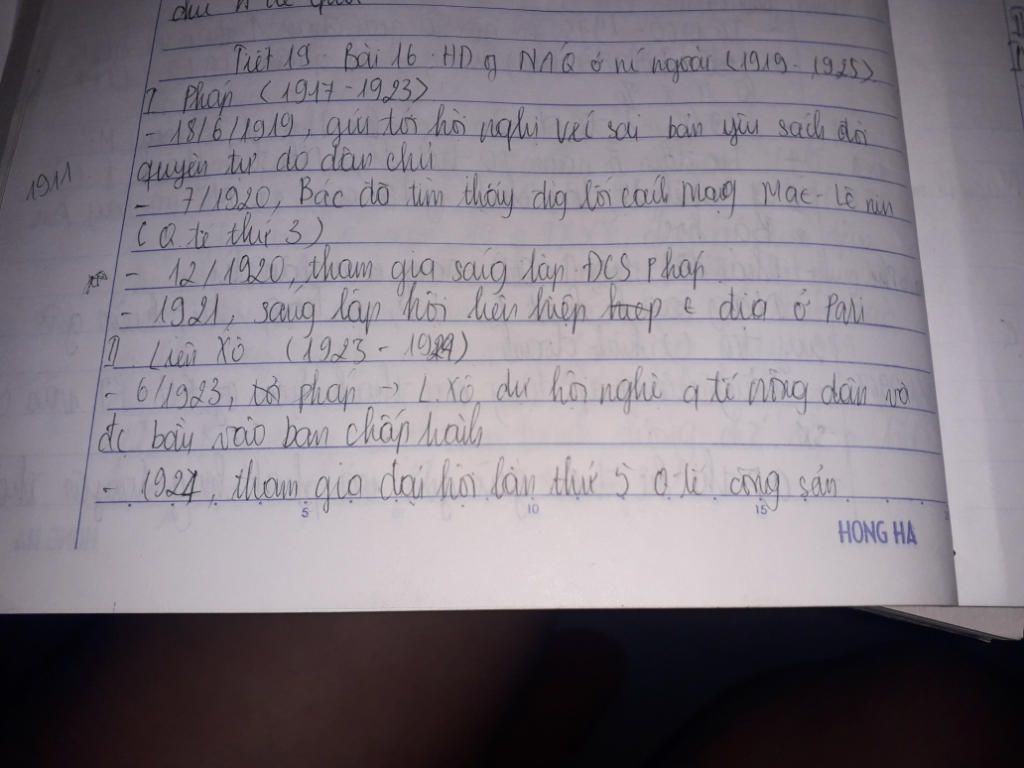 Tiết 19. Bài 16. HĐ g NAQ ở nc ngoài (1919 - 1925)
I Pháp (1917 - 1923)
- 18/6/1919, gửi tới hội nghị véc sai bản yêu sách đòi
1911
quyền tự do dân chủ
- 7/1920, Bác đã tìm thấy đg lối cách mạg Mac-Lê nin
(Q tê thứ 3)
- 12/1920, tham gia sáng lập ĐCS Pháp
- 1921, sáng lập hội liên hiệp t địa ở Pari
II Liên Xô (1923 - 1924)
- 6/1923, từ pháp -> L.Xô dự hội nghị q tế nông dân và
đc bầu vào ban chấp hành
- 1924, tham gia đại hội lần thứ 5 Q.tế cộng sản
5 10 15
HONG HA